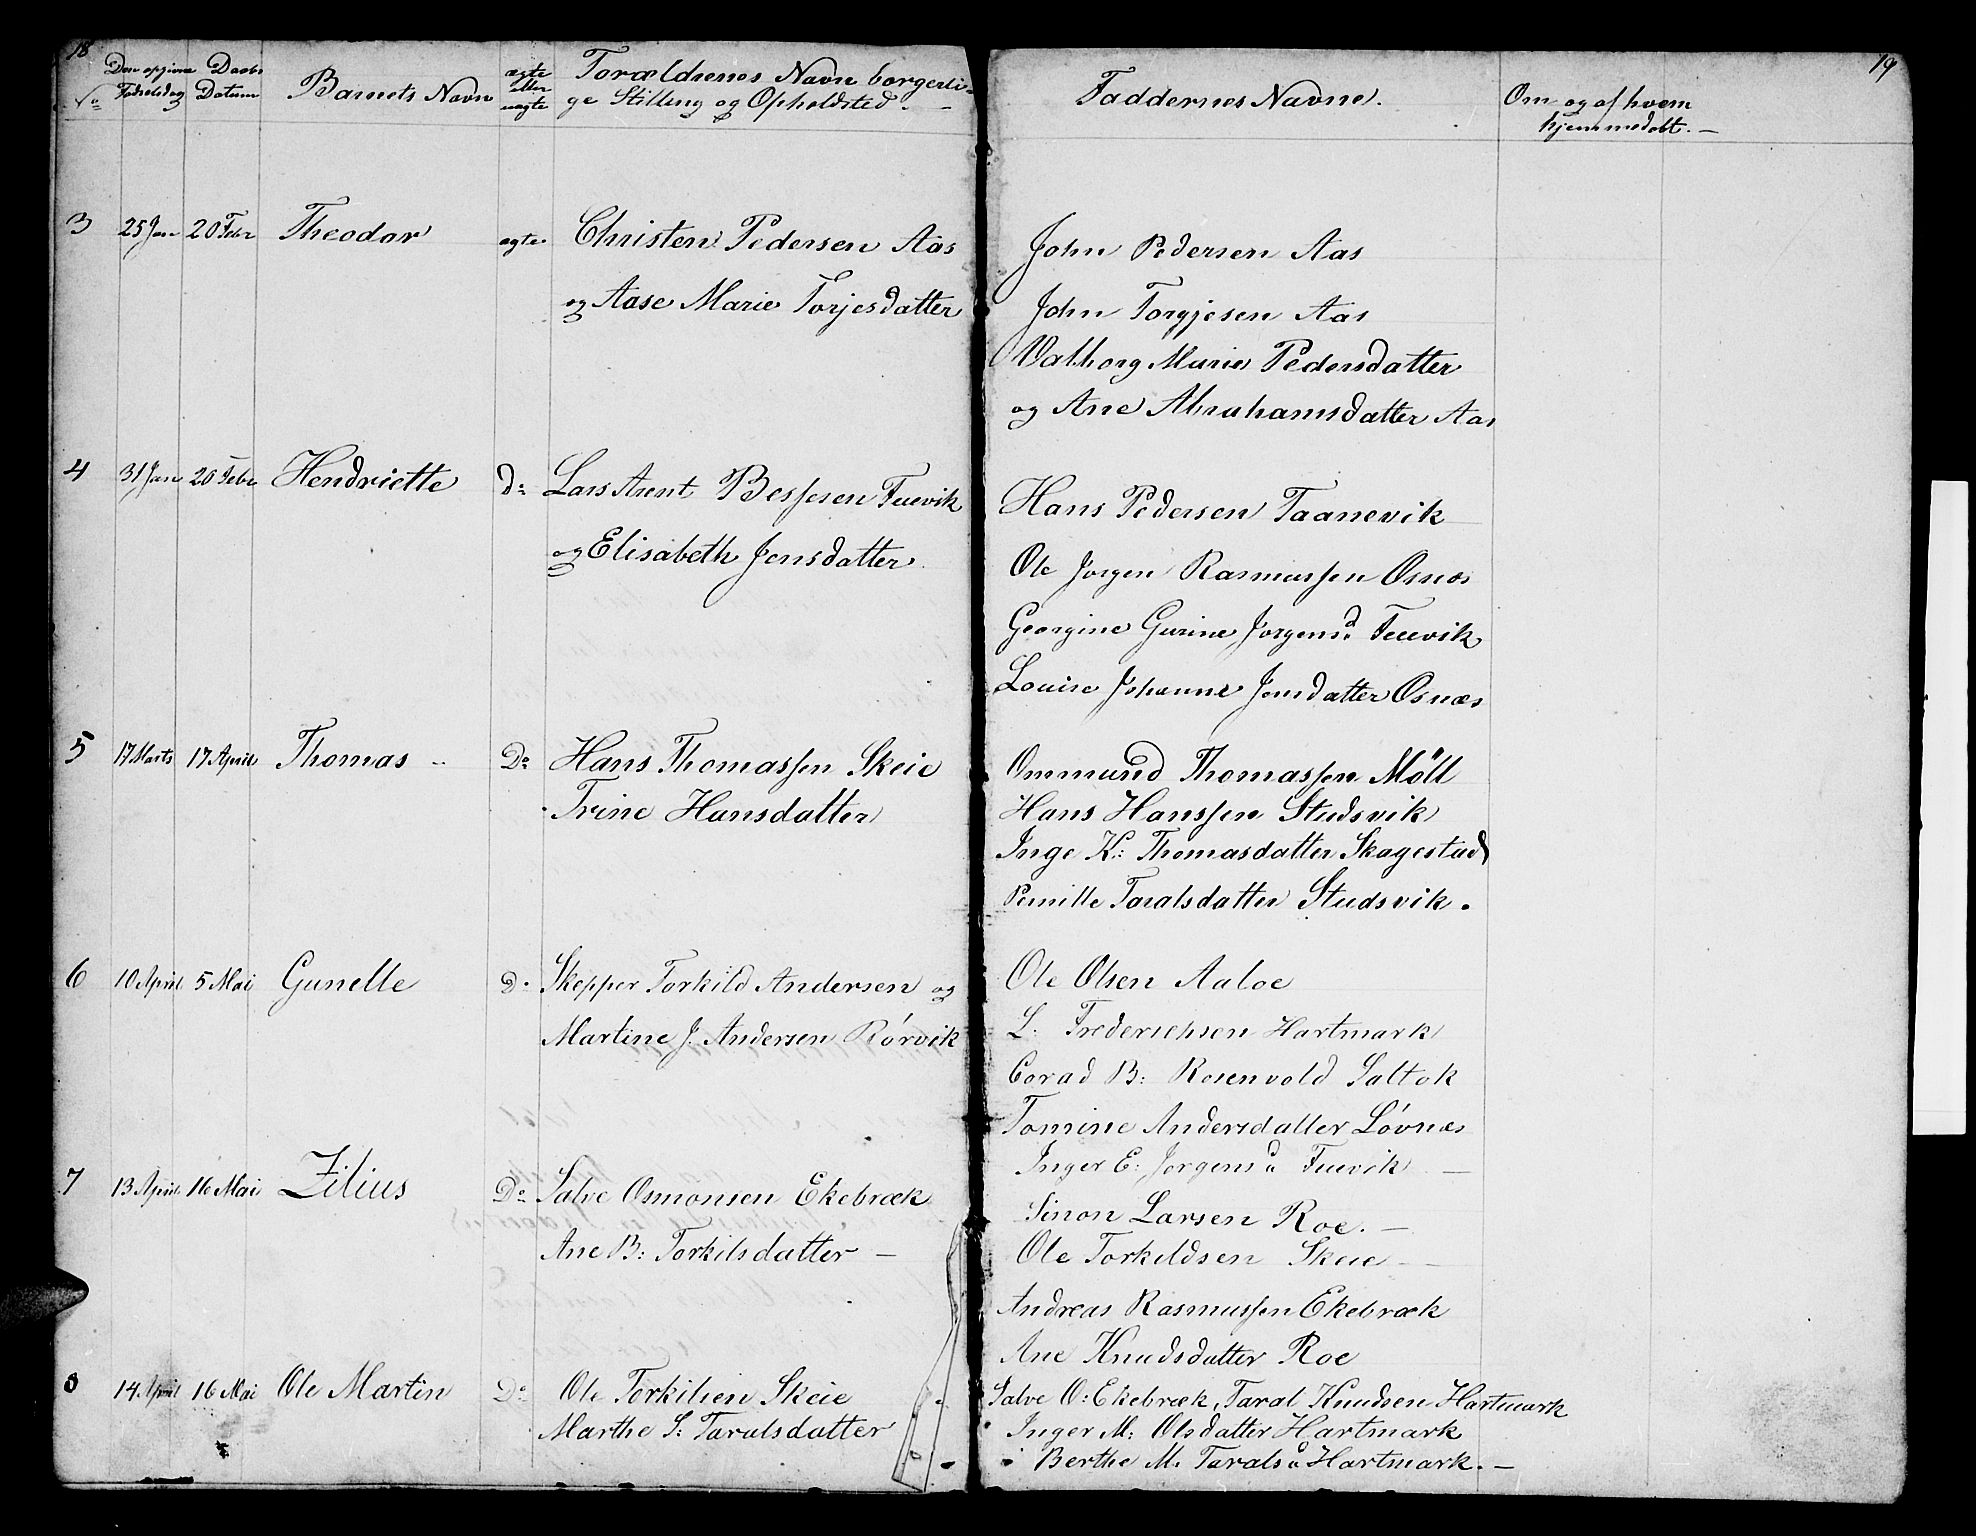 18
19
No
Den opgivne Fødselsdag
Daabs Datum
Barnets Navn
ægte eller uægte
Forældrenes Navn borgerli-
ge Stilling og Opholdsted. —
Faddernes Navne.
Om og af hvem
hjemmedøbt. —
3 25 Jan 20 Febr Theodor ægte Christen Pedersen Aas
og Aase Marie Torjesdatter
John Pedersen Aas
John Torgjesen Aas
Valborg Marie Pedersdatter
og Ane Abrahamsdatter Aas
4 31 Jan 20 Febr Hendriette Do Lars Arent Bessesen Tuevik
og Elisabeth Jensdatter
Hans Pedersen Taanevik
Ole Jørgen Rasmussen Osnæs
Georgine Gurine Jørgensd. Tuevik
Louise Johanne Jensdatter Osnæs
5 17 Marts 17 April Thomas Do Hans Thomassen Skeie
Trine Hansdatter
Ommund Thomassen Møll
Hans Hanssen Studsvik
Inge K: Thomasdatter Skagestad
Pernille Taralsdatter Studsvik.
6 10 April 5 Mai Gunelle Do Skepper Torkild Andersen og
Martine J. Andersen Rörvik
Ole Olsen Aaloe
L: Frederichsen Hartmark
Corad B: Rosenvold Saltok
Tomine Andersdatter Lóvnæs
Inger E: Jørgensd Tuevik —
7 13 April 16 Mai Zilius Do Salve Osmonsen Ekebræk
Ane B: Torkilsdatter —
Simon Larsen Roe. —
Ole Torkildsen Skeie —
Andreas Rasmussen Ekebræk
Ane Knudsdatter Roe
8 14 April 16 Mai Ole Martin Do Ole Torkilsen Skeie
Marthe S: Taralsdatter
Salve O: Ekebræk, Taral Knudsen Hartmark
Inger M: Olsdatter Hartmark
Berthe M. Taralsd Hartmark. —